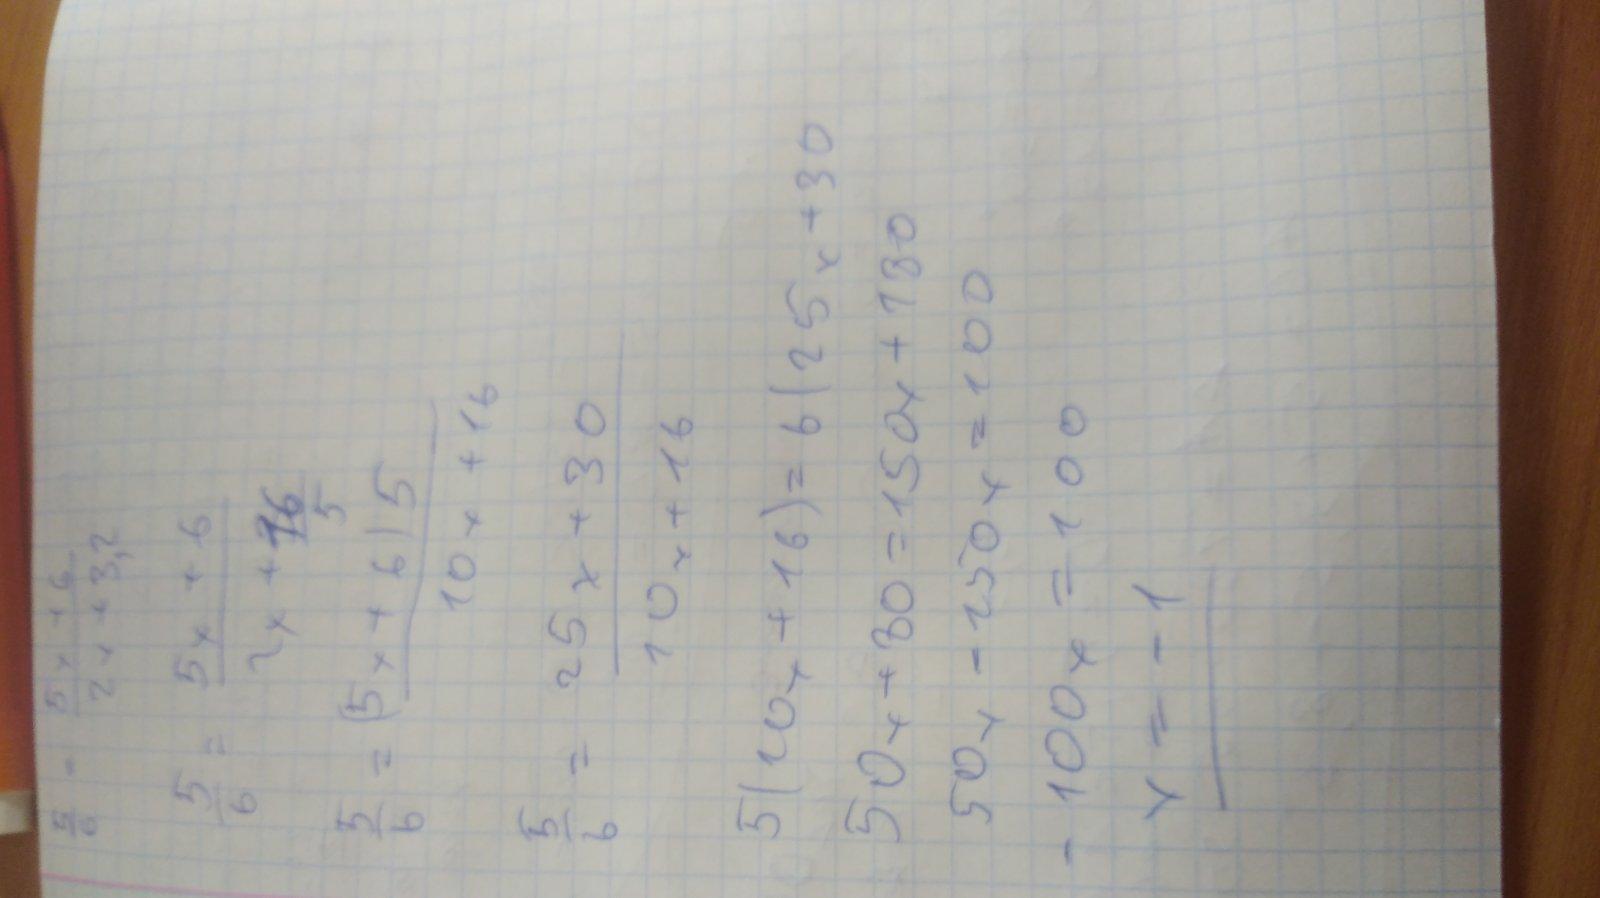 5/6 = 5x + 6 / 2x + 3,2
5/6 = 5x + 6 / 2x + 16/5
5/6 = (5x + 6)5 / 10x + 16
5/6 = 25x + 30 / 10x + 16
5(10x + 16) = 6(25x + 30
50x + 80 = 150x + 180
50x - 150x = 100
- 100x = 100
x = - 1